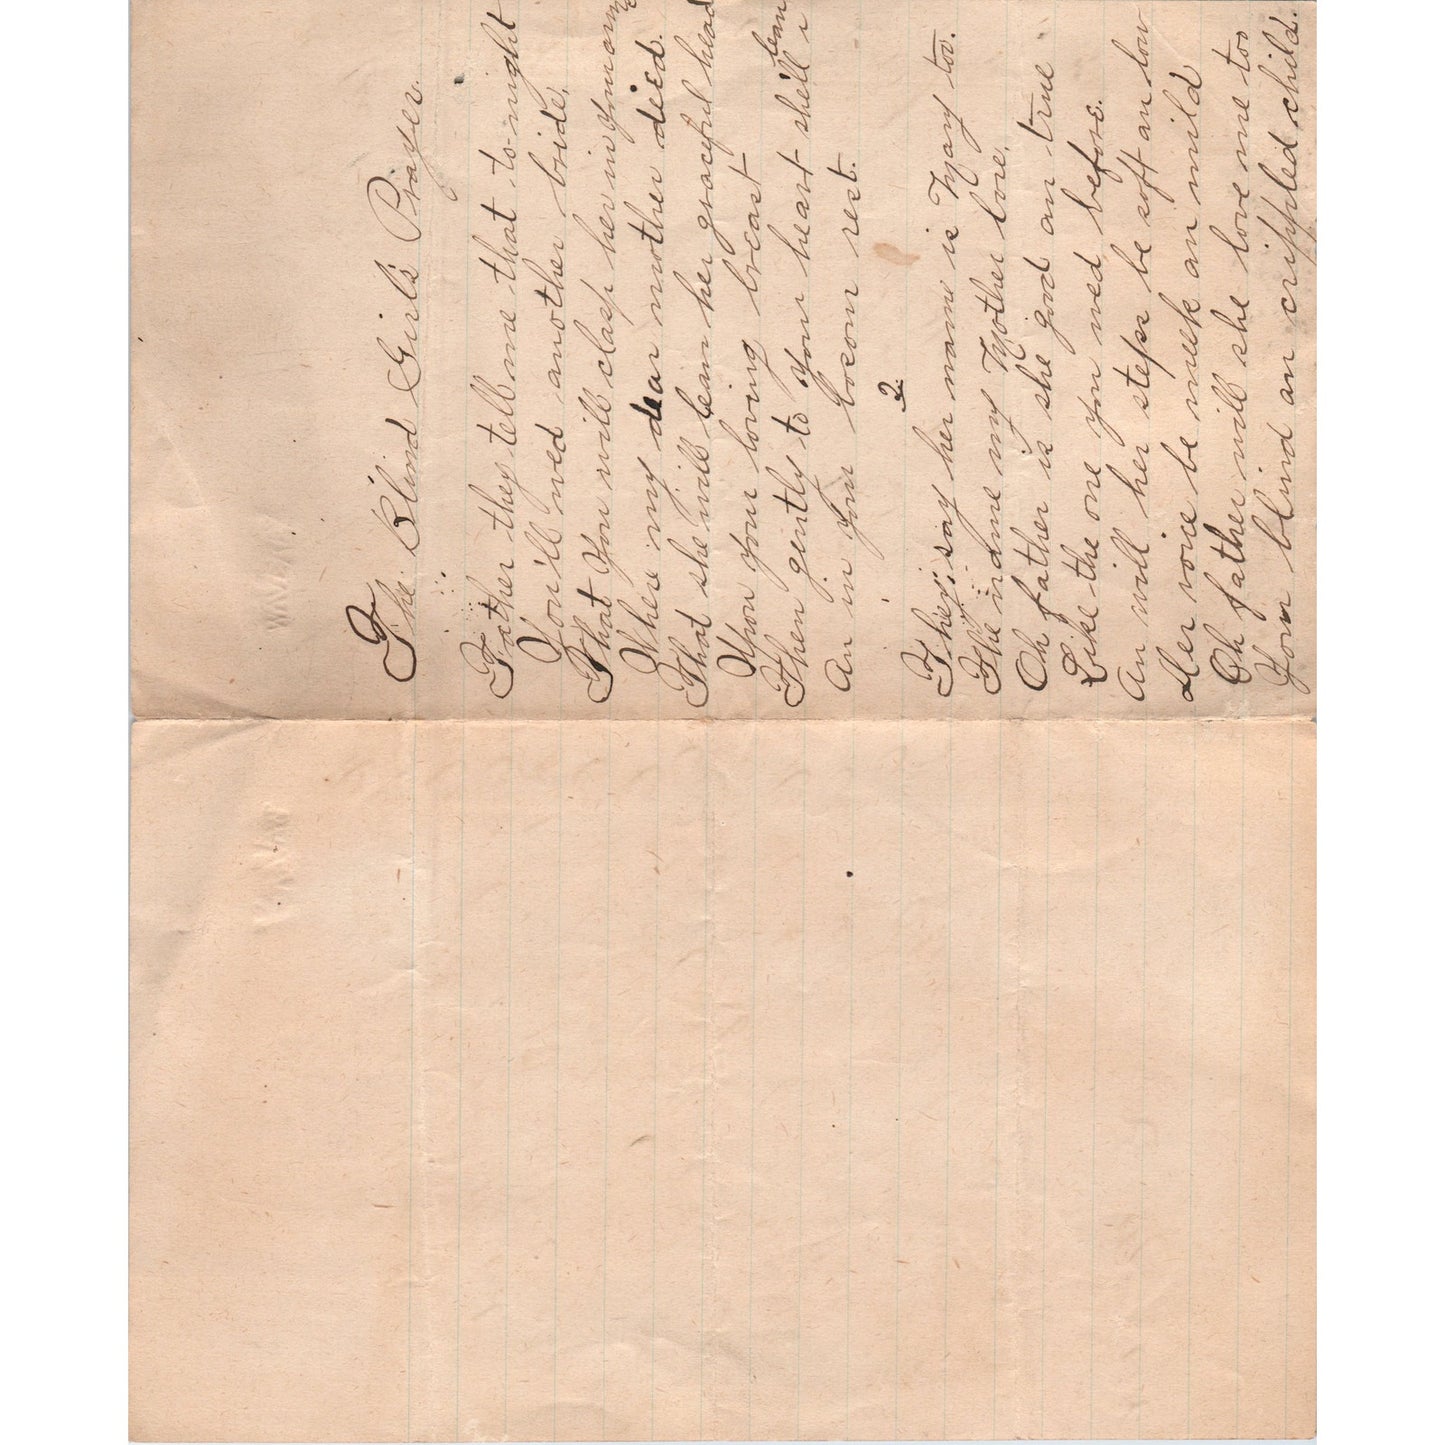 The Blind Girl's Prayer.
Father they tell me that to-night
You'll wed another bride,
That You will clasp her in your arms
Where my dear mother died.
That she will lean her graceful head
Upon your loving breast
Then gently to your heart shell lean
An in your bosom rest.
2
They say her name is Mary too.
The name my Mother bore.
Oh father is she good an true
Like the one you wed before.
An will her steps be soft an low
Her voice be meek an mild
Oh father will she love me too
Your blind an crippled child.